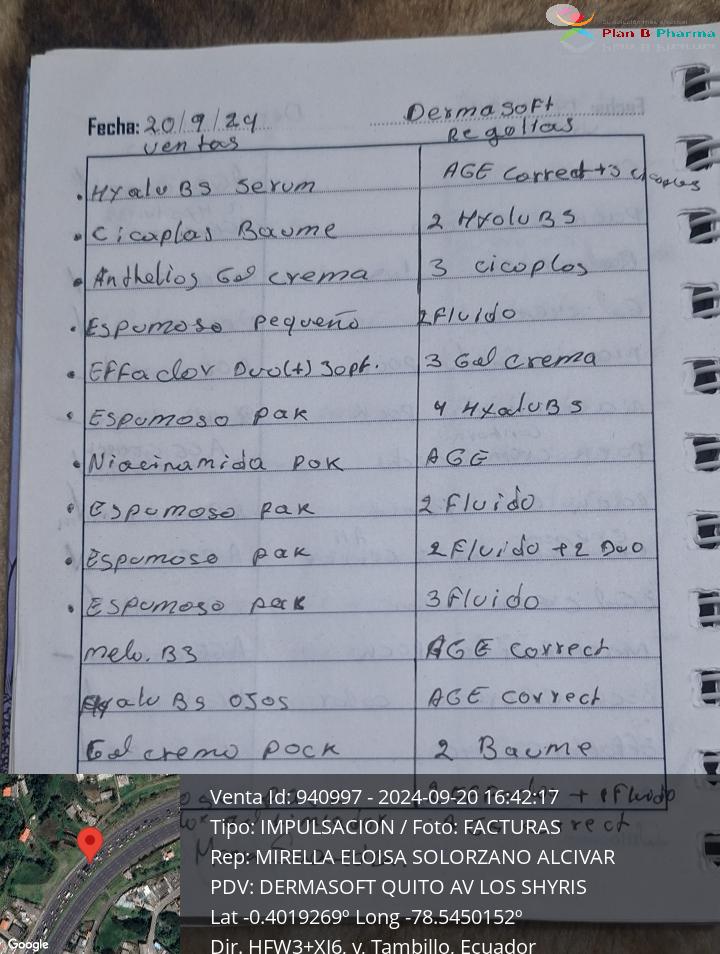 Plan B Pharma
Fecha: 20/9/24 Dermasoft
ventas Regalias
. Hyalu B5 serum AGE Correct + 3 cicaplas
. Cicaplas Baume 2 Hyalu B5
. Anthelios Gel crema 3 cicaplas
. Espumoso pequeño 2 Fluido
. Effaclor Duo(+) 30pt. 3 Gel crema
. Espumoso pak 4 Hyalu B5
. Niacinamida pak AGE
. Espumoso pak 2 Fluido
. Espumoso pak 2 Fluido + 2 Duo
. Espumoso pak 3 Fluido
Mela. B3 AGE correct
Hyalu B5 ojos AGE correct
Gel crema pack 2 Baume
+ 1 Fluido
Venta Id: 940997 - 2024-09-20 16:42:17
Tipo: IMPULSACION / Foto: FACTURAS
Rep: MIRELLA ELOISA SOLORZANO ALCIVAR
PDV: DERMASOFT QUITO AV LOS SHYRIS
Lat -0.4019269º Long -78.5450152º
Dir. HFW3+XJ6, y, Tambillo, Ecuador
Google